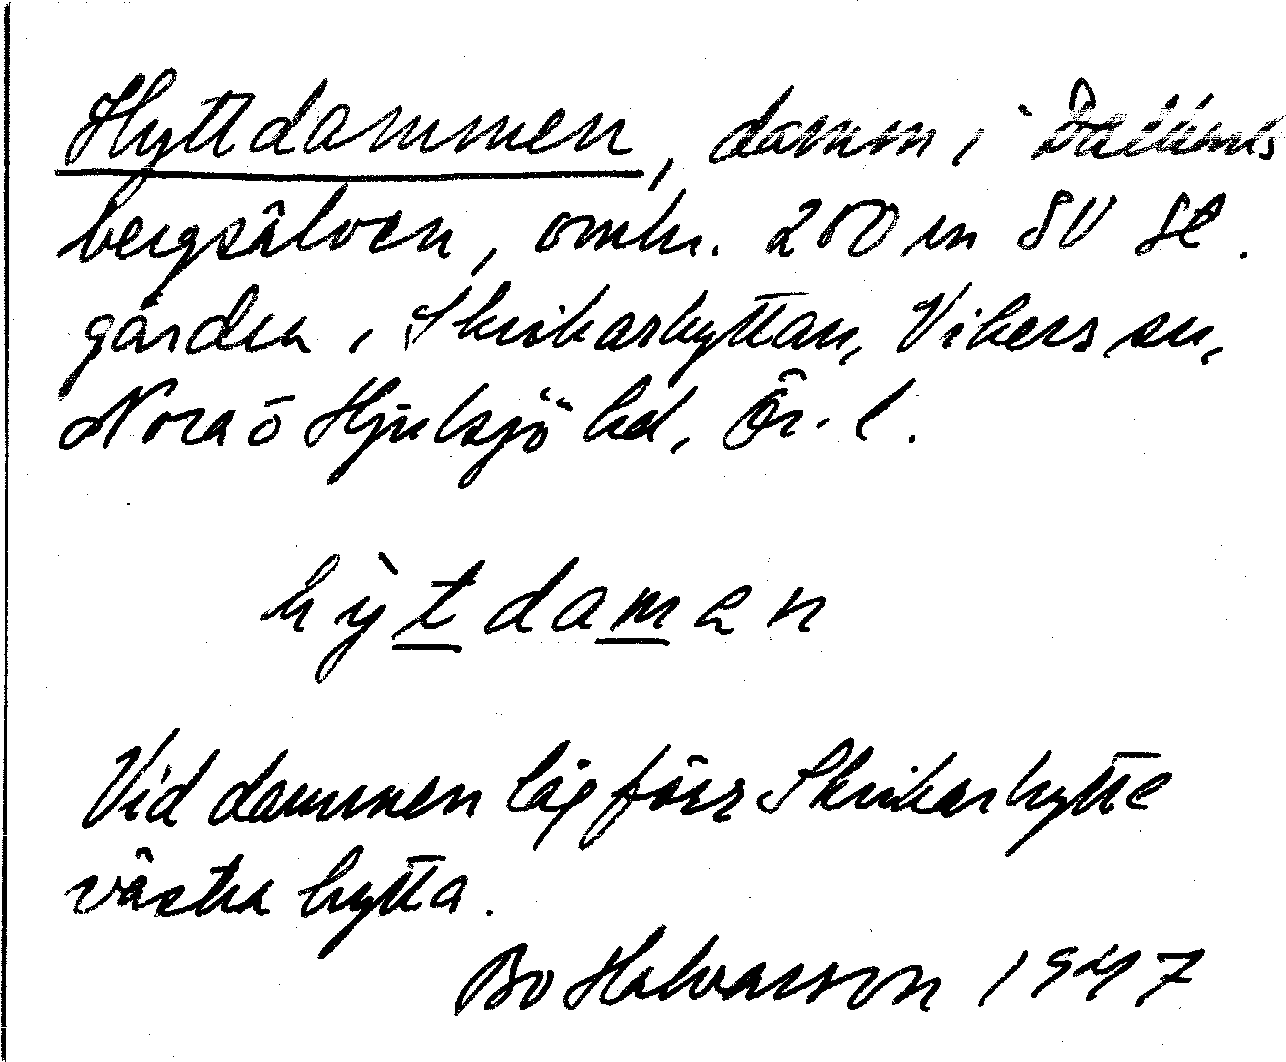 Hyttdammen, damm i
bergsälven, omkr. 200 m SV St.
gården, Skrikarhyttan, Vikers sn,
Nora o Hjulsjö hd, Ör. l.
hỳtdamen
Vid dammen låg förr Skrikarhytte
västra hytta.
Bo Halvarson 1947